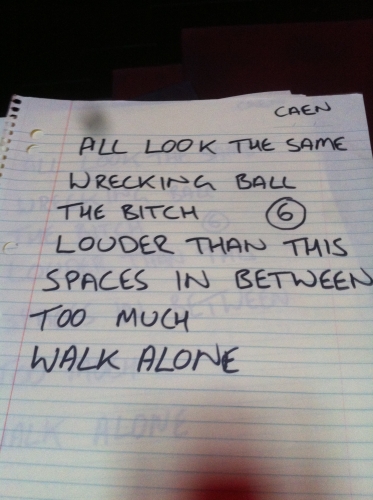 CAEN
ALL LOOK THE SAME
WRECKING BALL
THE BITCH 6
LOUDER THAN THIS
SPACES IN BETWEEN
TOO MUCH
WALK ALONE